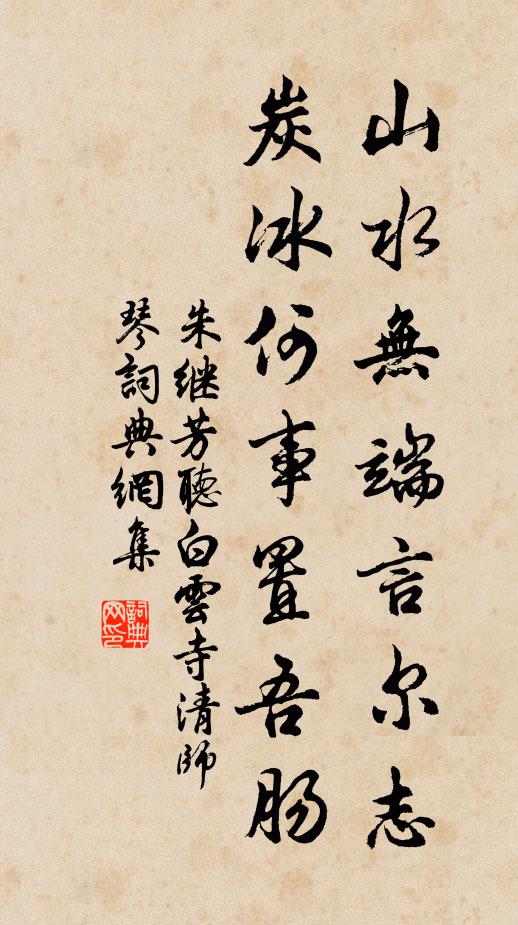 山水無端言尔志
炭冰何事置吾肠
朱继芳聽白雲寺清師
琴詞典網集
詞典网印